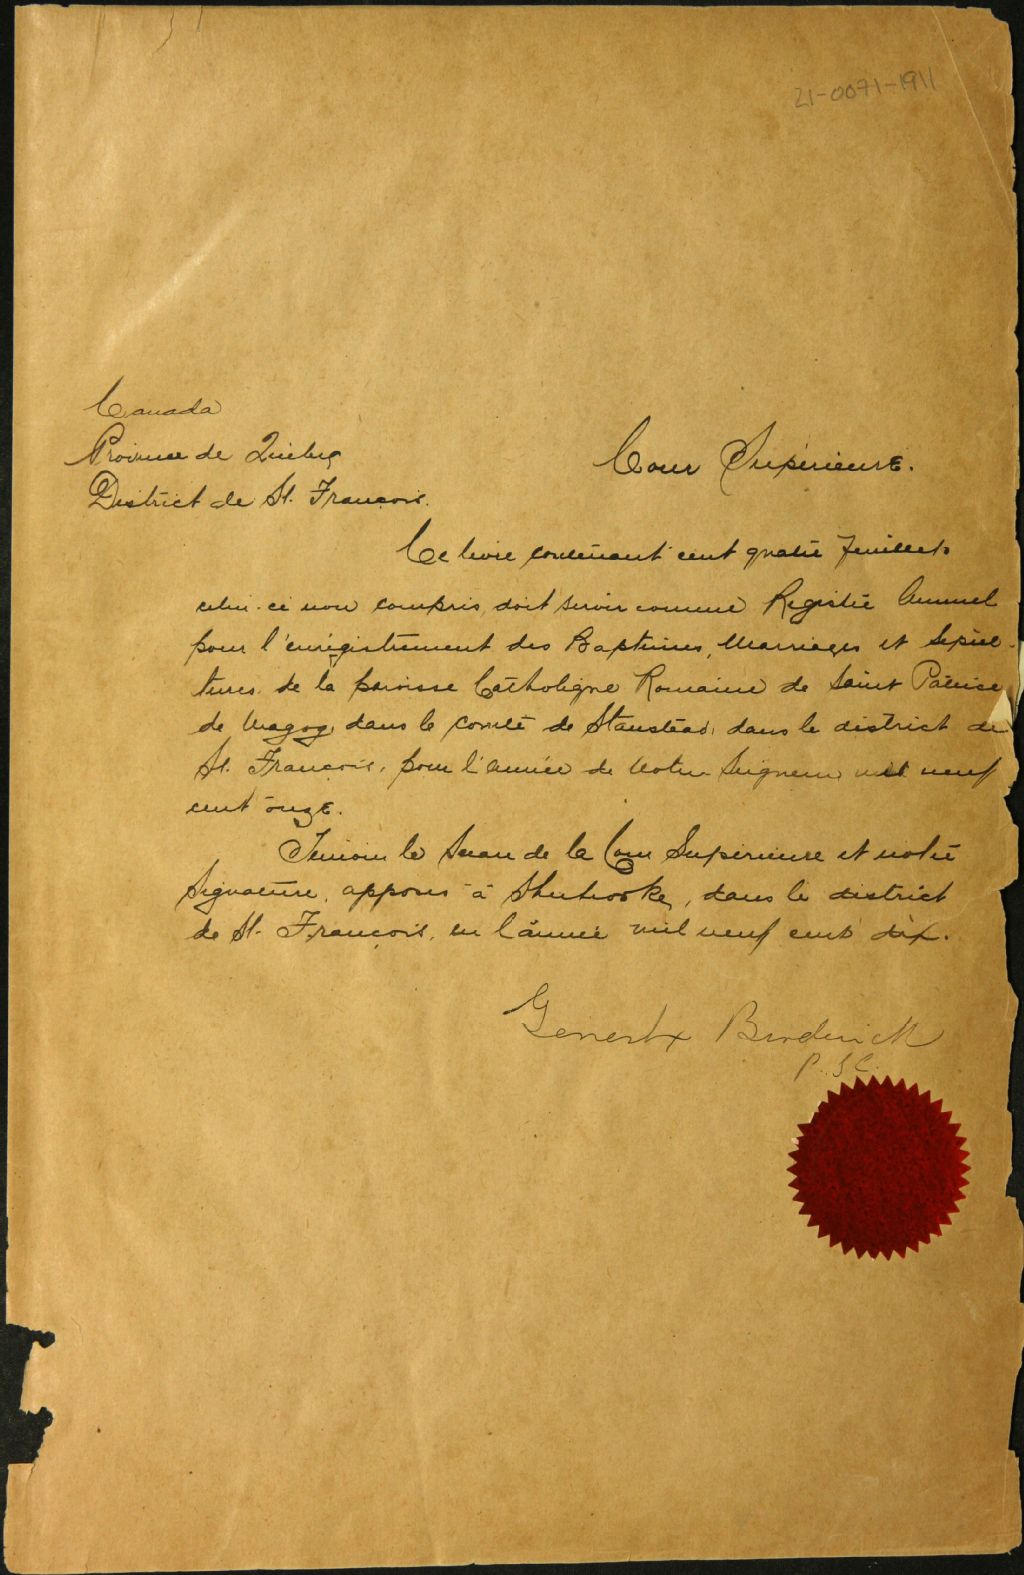 21-0071-1911
Canada
Province de Québec
District de St. François.
Cour Supérieure.
Ce livre contenant cent quatre feuillets
celui-ci non compris, doit servir comme Registre Annuel
pour l'enrégistrement des Baptêmes, Marriages et Sépul-
tures de la paroisse Catholique Romaine de Saint Patrice
de Magog, dans le comté de Stanstead, dans le district de
St. François, pour l'année de Notre Seigneur mil neuf
cent onze.
Témoin le Sceau de la Cour Supérieure et notre
Signature, apposés à Sherbrooke, dans le district
de St. François, en l'année mil neuf cent dix.
Broderick
P.S.C.